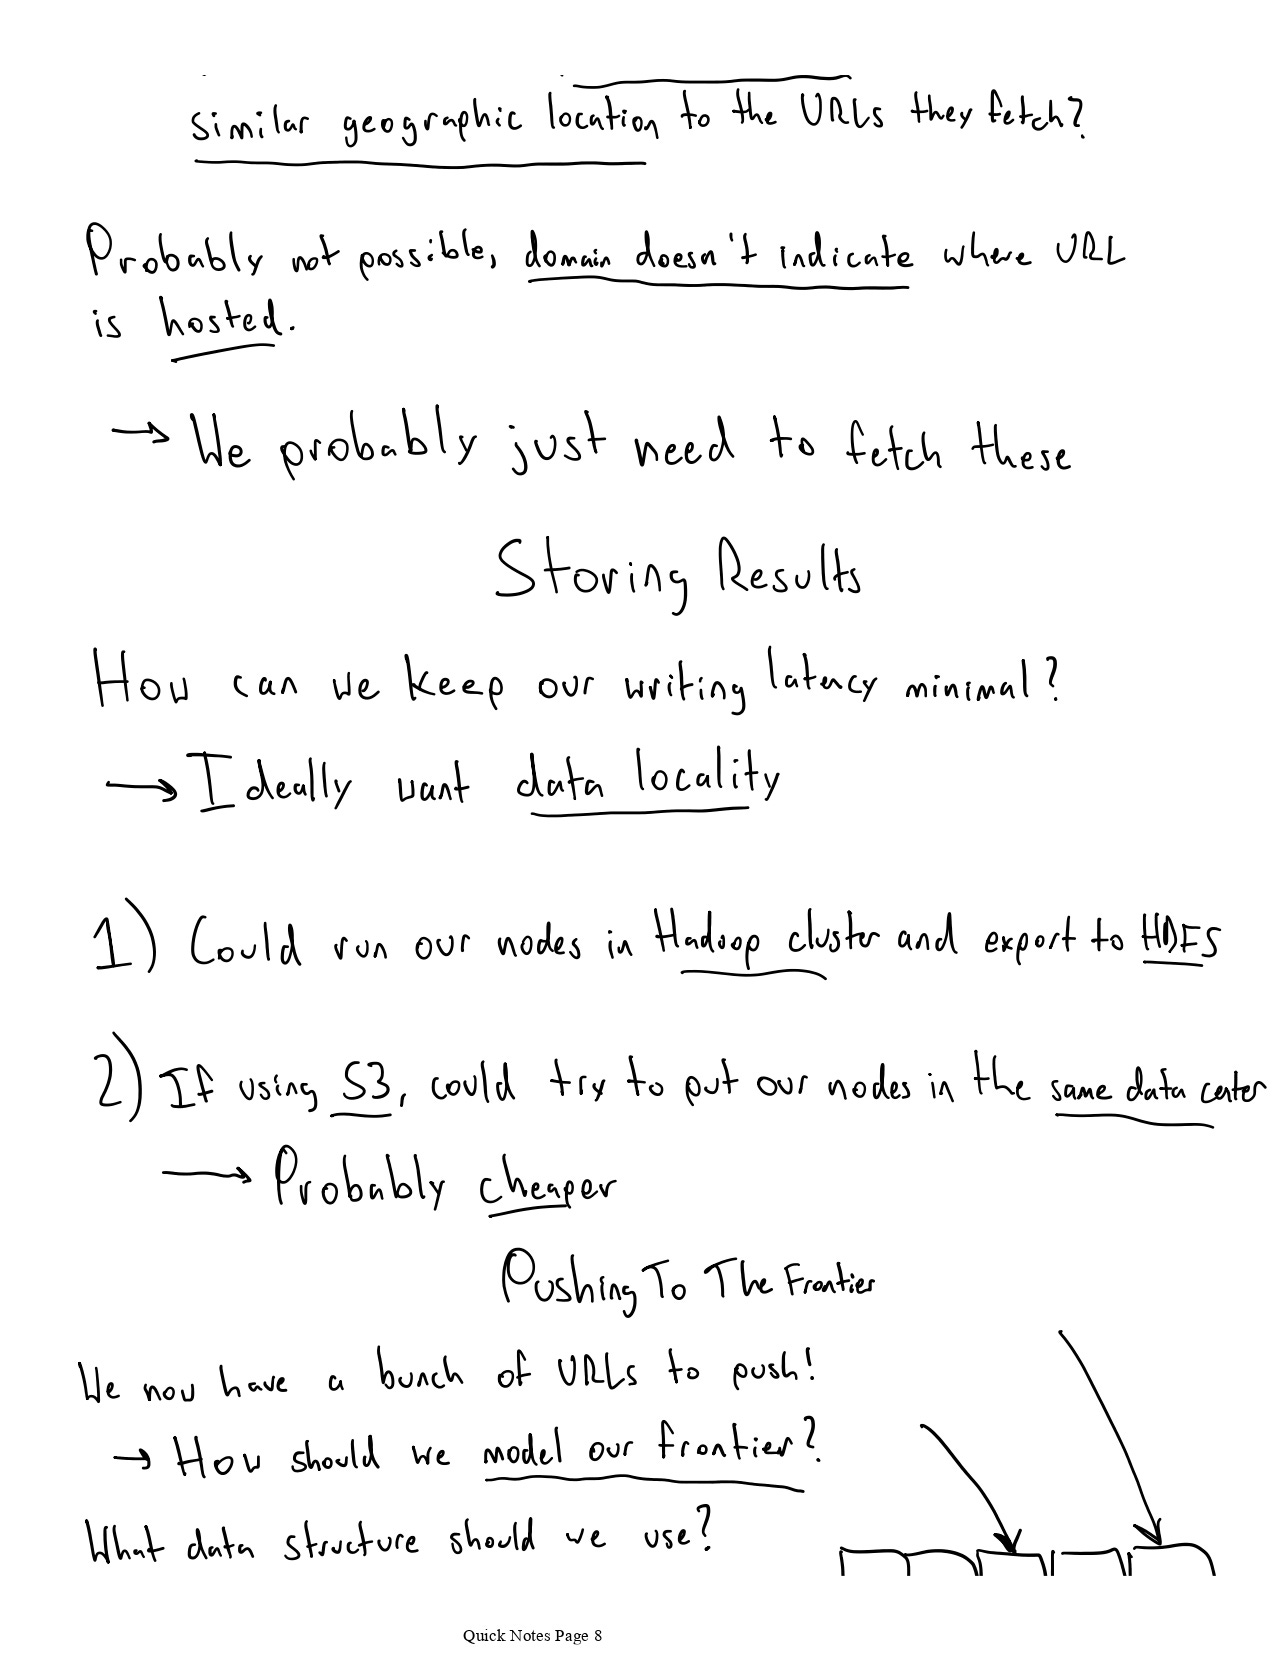 similar geographic location to the URLs they fetch?
Probably not possible, domain doesn't indicate where URL
is hosted.
→ We probably just need to fetch these
Storing Results
How can we keep our writing latency minimal?
→ Ideally want data locality
1) Could run our nodes in Hadoop cluster and export to HDFS
2) If using S3, could try to put our nodes in the same data center
→ Probably cheaper
Pushing To The Frontier
We now have a bunch of URLs to push!
→ How should we model our frontier?
What data structure should we use?
Quick Notes Page 8